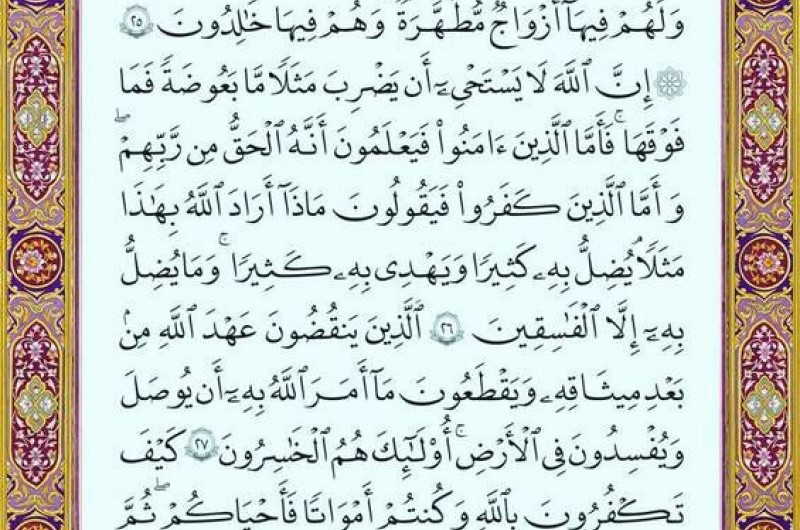 وَلَهُمْ فِيهَآ أَزْوَٰجٌ مُّطَهَّرَةٌ وَهُمْ فِيهَا خَٰلِدُونَ ٢٥
۞ إِنَّ ٱللَّهَ لَا يَسْتَحْىِۦٓ أَن يَضْرِبَ مَثَلًا مَّا بَعُوضَةً فَمَا
فَوْقَهَا ۚ فَأَمَّا ٱلَّذِينَ ءَامَنُوا۟ فَيَعْلَمُونَ أَنَّهُ ٱلْحَقُّ مِن رَّبِّهِمْ ۖ
وَأَمَّا ٱلَّذِينَ كَفَرُوا۟ فَيَقُولُونَ مَاذَآ أَرَادَ ٱللَّهُ بِهَٰذَا
مَثَلًا ۘ يُضِلُّ بِهِۦ كَثِيرًا وَيَهْدِى بِهِۦ كَثِيرًا ۚ وَمَا يُضِلُّ
بِهِۦٓ إِلَّا ٱلْفَٰسِقِينَ ٢٦ ٱلَّذِينَ يَنقُضُونَ عَهْدَ ٱللَّهِ مِنۢ
بَعْدِ مِيثَٰقِهِۦ وَيَقْطَعُونَ مَآ أَمَرَ ٱللَّهُ بِهِۦٓ أَن يُوصَلَ
وَيُفْسِدُونَ فِى ٱلْأَرْضِ ۚ أُو۟لَٰٓئِكَ هُمُ ٱلْخَٰسِرُونَ ٢٧ كَيْفَ
تَكْفُرُونَ بِٱللَّهِ وَكُنتُمْ أَمْوَٰتًا فَأَحْيَٰكُمْ ۖ ثُمَّ